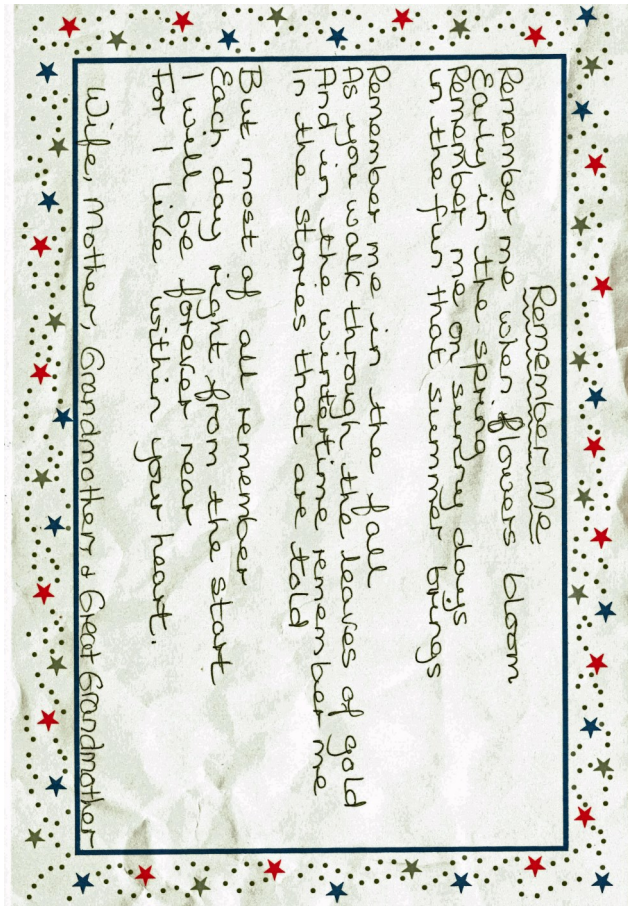 Remember Me
Remember me when flowers bloom
Early in the spring
Remember me on sunny days
in the fun that summer brings
Remember me in the fall
As you walk through the leaves of gold
And in the wintertime remember me
In the stories that are told
But most of all remember
Each day right from the start
I will be forever near
For I live within your heart.
Wife, Mother, Grandmother & Great Grandmother